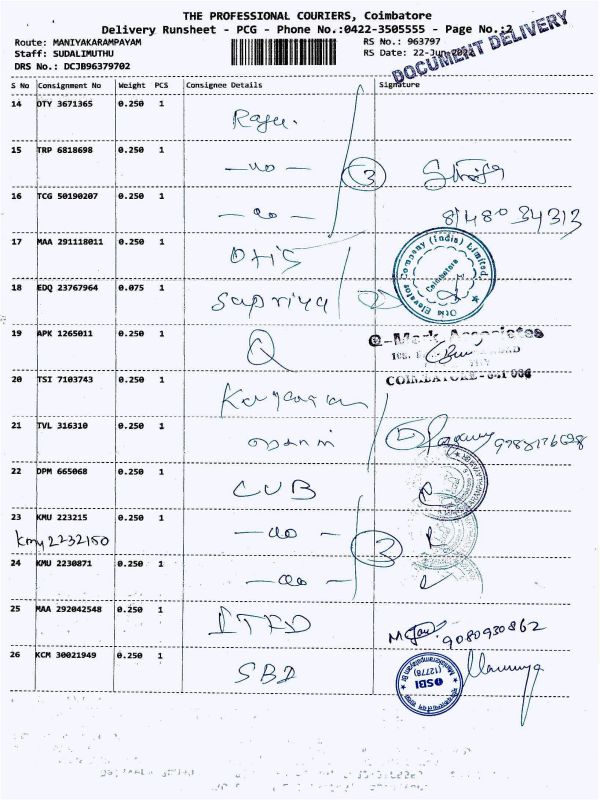 THE PROFESSIONAL COURIERS, Coimbatore
Delivery Runsheet - PCG - Phone No.:0422-3505555 - Page No.:2
Route: MANIYAKARAMPAYAM RS No.: 963797
Staff: SUDALIMUTHU RS Date: 22-Jun-2022
DRS No.: DCJB96379702
DOCUMENT DELIVERY
S No Consignment No Weight PCS Consignee Details Signature
14 OTY 3671365 0.250 1 Raju.
15 TRP 6818698 0.250 1 — do — 3
16 TCG 50190207 0.250 1 — do —
17 MAA 291118011 0.250 1 OTIS
Otis Elevator Company (India) Limited. Coimbatore
18 EDQ 23767964 0.075 1 Sapriya 2
19 APK 1265011 0.250 1
Q-Mark Associates
COIMBATORE - 641 006
20 TSI 7103743 0.250 1
21 TVL 316310 0.250 1
22 DPM 665068 0.250 1 CUB
23 KMU 223215 0.250 1 — do — 3
kmy 2232150
24 KMU 2230871 0.250 1 — do —
25 MAA 292042548 0.250 1
9080930862
26 KCM 30021949 0.250 1 SBI
SBI (12778)